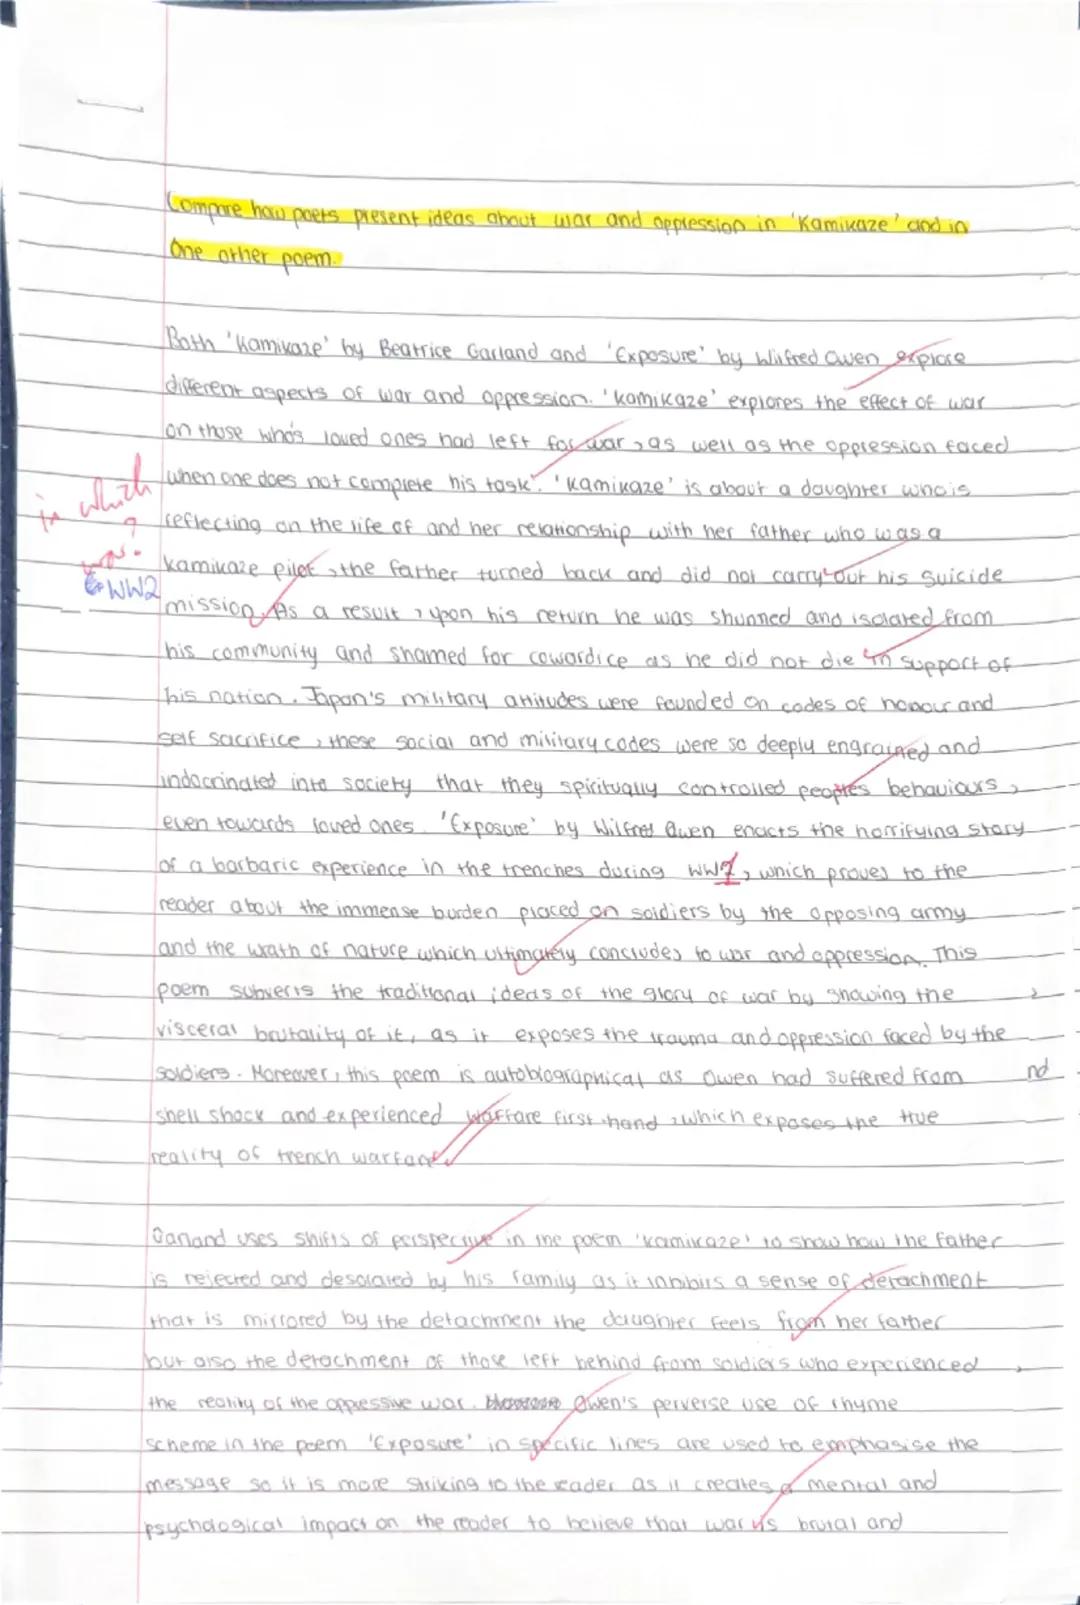 Compare how poets present ideas about war and oppression in 'Kamikaze' and in
One other poem.
Both 'Kamikaze' by Beatrice Garland and 'Exposure' by Wilfred Owen explore
different aspects of war and oppression. 'Kamikaze' explores the effect of war
on those who's loved ones had left for war, as well as the oppression faced
when one does not complete his task. 'Kamikaze' is about a daughter who is
in which
reflecting on the life of and her relationship with her father who was a
war?
kamikaze pilot, the father turned back and did not carry out his suicide
WW2
mission. As a result, upon his return he was shunned and isolated from
his community and shamed for cowardice as he did not die in support of
his nation. Japan's military attitudes were founded on codes of honour and
self sacrifice, these social and military codes were so deeply engrained and
indocrinated into society that they spiritually controlled peoples behaviours,
even towards loved ones. 'Exposure' by Wilfred Owen enacts the horrifying story
of a barbaric experience in the trenches during WW1, which proves to the
reader about the immense burden placed on soldiers by the opposing army
and the wrath of nature which ultimately concludes to war and oppression. This
poem subverts the traditional ideas of the glory of war by showing the
visceral brutality of it, as it exposes the trauma and oppression faced by the
soldiers. Moreover, this poem is autobiographical as Owen had suffered from
nd
shell shock and experienced warfare first hand, which exposes the true
reality of trench warfare.
Garland uses shifts of perspective in the poem 'kamikaze' to show how the father
is rejected and desolated by his family as it inhibits a sense of detachment
that is mirrored by the detachment the daughter feels from her father
but also the detachment of those left behind from soldiers who experienced
the reality of the oppressive war. Owen's perverse use of rhyme
scheme in the poem 'Exposure' in specific lines are used to emphasise the
message so it is more striking to the reader as it creates a mental and
psychological impact on the reader to believe that war is brutal and